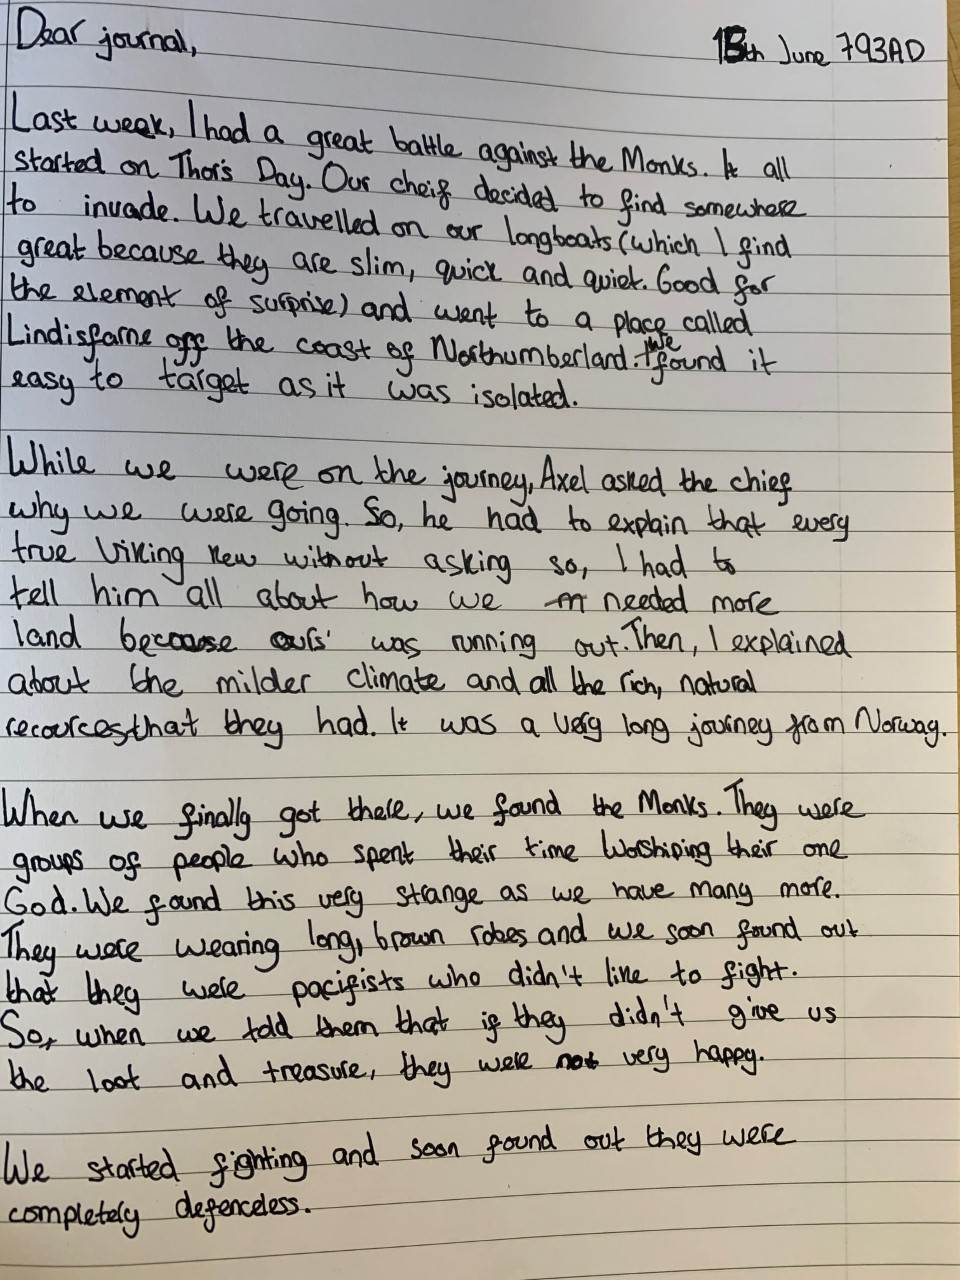 Dear journal,
15th June 793AD
Last week, I had a great battle against the Monks. It all
started on Thor's Day. Our cheif decided to find somewhere
to invade. We travelled on our longboats (which I find
great because they are slim, quick and quiet. Good for
the element of surprise) and went to a place called
Lindisfarne off the coast of Northumberland. We found it
easy to target as it was isolated.
While we were on the journey, Axel asked the chief
why we were going. So, he had to explain that every
true Viking new without asking so, I had to
tell him all about how we needed more
land because ours' was running out. Then, I explained
about the milder climate and all the rich, natural
recources that they had. It was a very long journey from Norway.
When we finally got there, we found the Monks. They were
groups of people who spent their time Worshiping their one
God. We found this very strange as we have many more.
They were wearing long, brown robes and we soon found out
that they were pacifists who didn't like to fight.
So, when we told them that if they didn't give us
the loot and treasure, they were not very happy.
We started fighting and soon found out they were
completely defenceless.